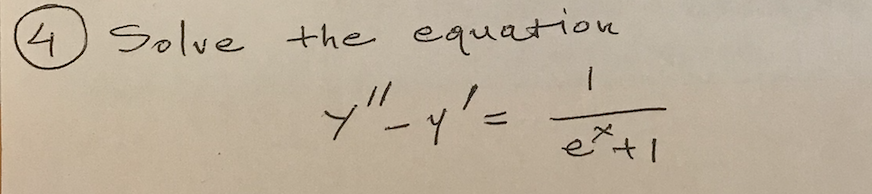 4 Solve the equation
y'' - y' = 1/(e^x + 1)